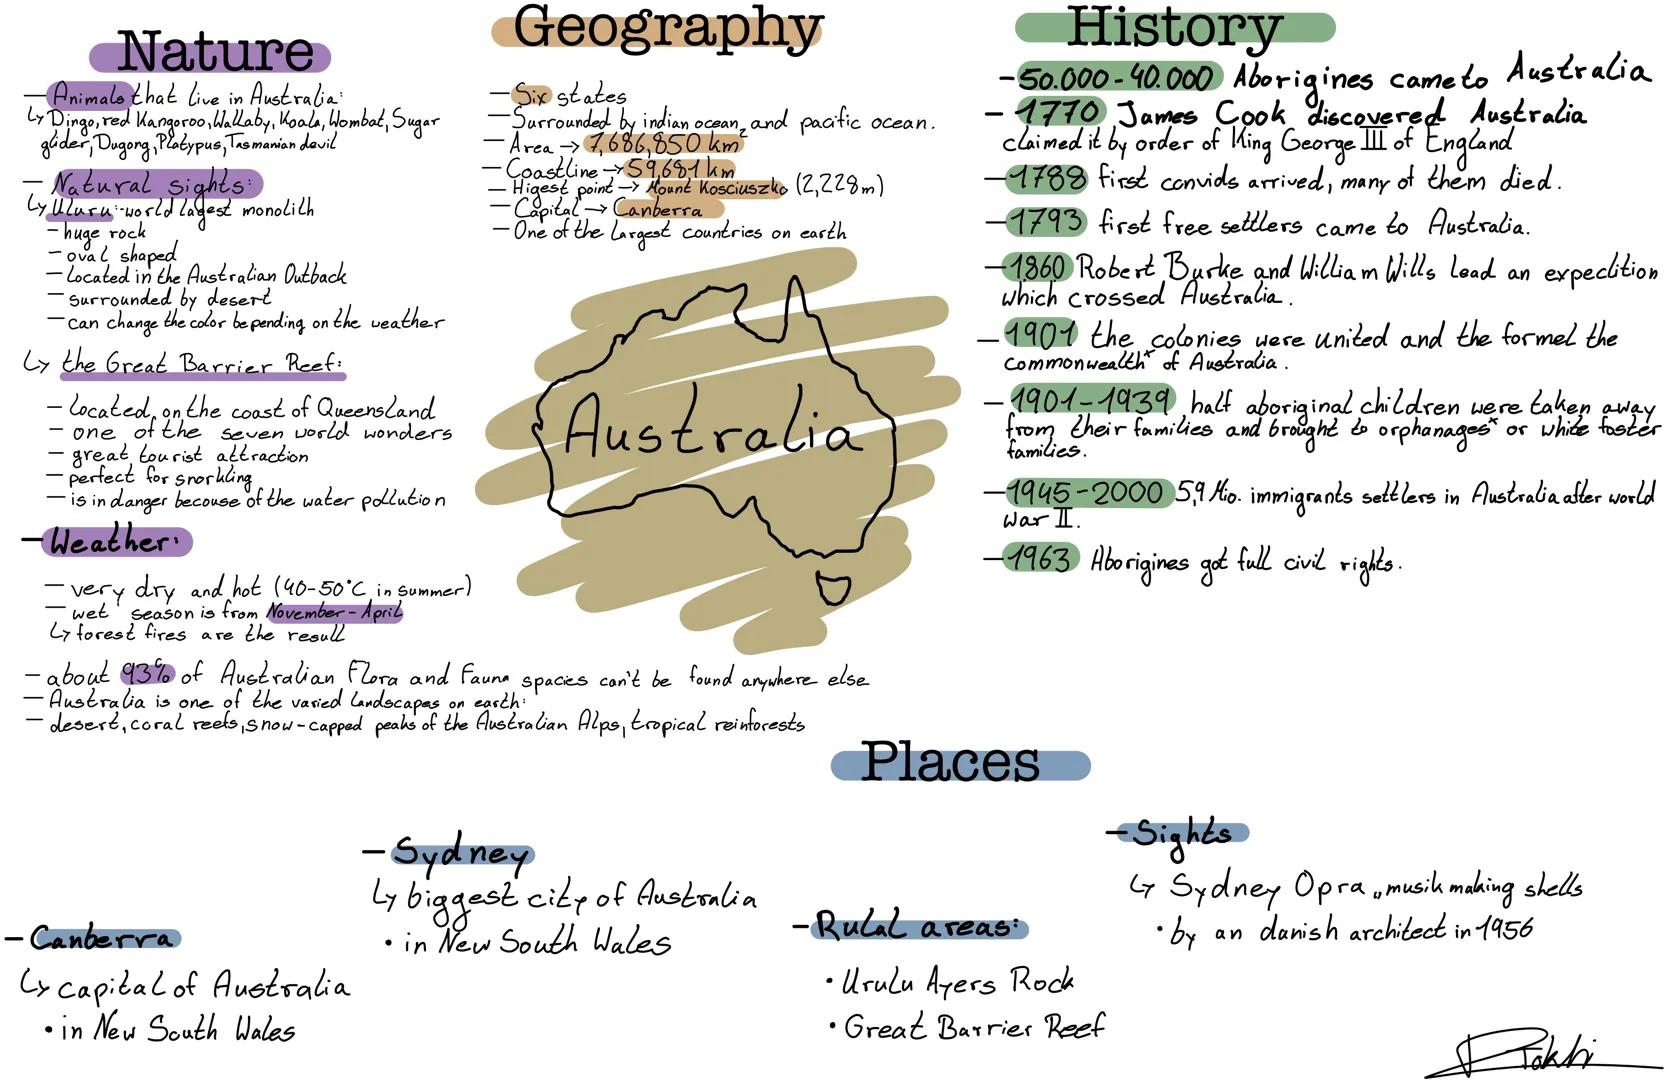 Nature
— Animals that live in Australia:
↳ Dingo, red Kangoroo, Wallaby, Koala, Wombat, Sugar
glider, Dugong, Platypus, Tasmanian devil
— Natural sights:
↳ Uluru:-world lagest monolith
— huge rock
— oval shaped
— located in the Australian Outback
— surrounded by desert
— can change the color bepending on the weather
↳ the Great Barrier Reef:
— located on the coast of Queensland
— one of the seven world wonders
— great tourist attraction
— perfect for snorkling
— is in danger becouse of the water pollution
— Weather:
— very dry and hot (40-50°C in summer)
— wet season is from November - April
↳ forest fires are the result
— about 93% of Australian Flora and Fauna spacies can't be found anywhere else
— Australia is one of the varied landscapes on earth:
— desert, coral reefs, snow-capped peaks of the Australian Alps, tropical reinforests
Geography
— Six states
— Surrounded by indian ocean, and pacific ocean.
— Area → 7,686,850 km²
— Coastline → 59,681 km
— Higest point → Mount Kosciuszko (2,228m)
— Capital → Canberra
— One of the largest countries on earth
Australia
History
— 50.000 - 40.000 Aborigines came to Australia
— 1770 James Cook discovered Australia
claimed it by order of King George III of England
— 1788 first convids arrived, many of them died.
— 1793 first free settlers came to Australia.
— 1860 Robert Burke and William Wills lead an expeclition
which crossed Australia.
— 1901 the colonies were united and the formel the
commonwealth* of Australia.
— 1901-1939 half aboriginal children were taken away
from their families and brought to orphanages* or white foster
families.
— 1945-2000 5,9 Mio. immigrants settlers in Australia after world
war II.
— 1963 Aborigines got full civil rights.
Places
— Canberra
↳ capital of Australia
• in New South Wales
— Sydney
↳ biggest city of Australia
• in New South Wales
— Rulal areas:
• Urulu Ayers Rock
• Great Barrier Reef
— Sights
↳ Sydney Opra „musik making shells
• by an danish architect in 1956